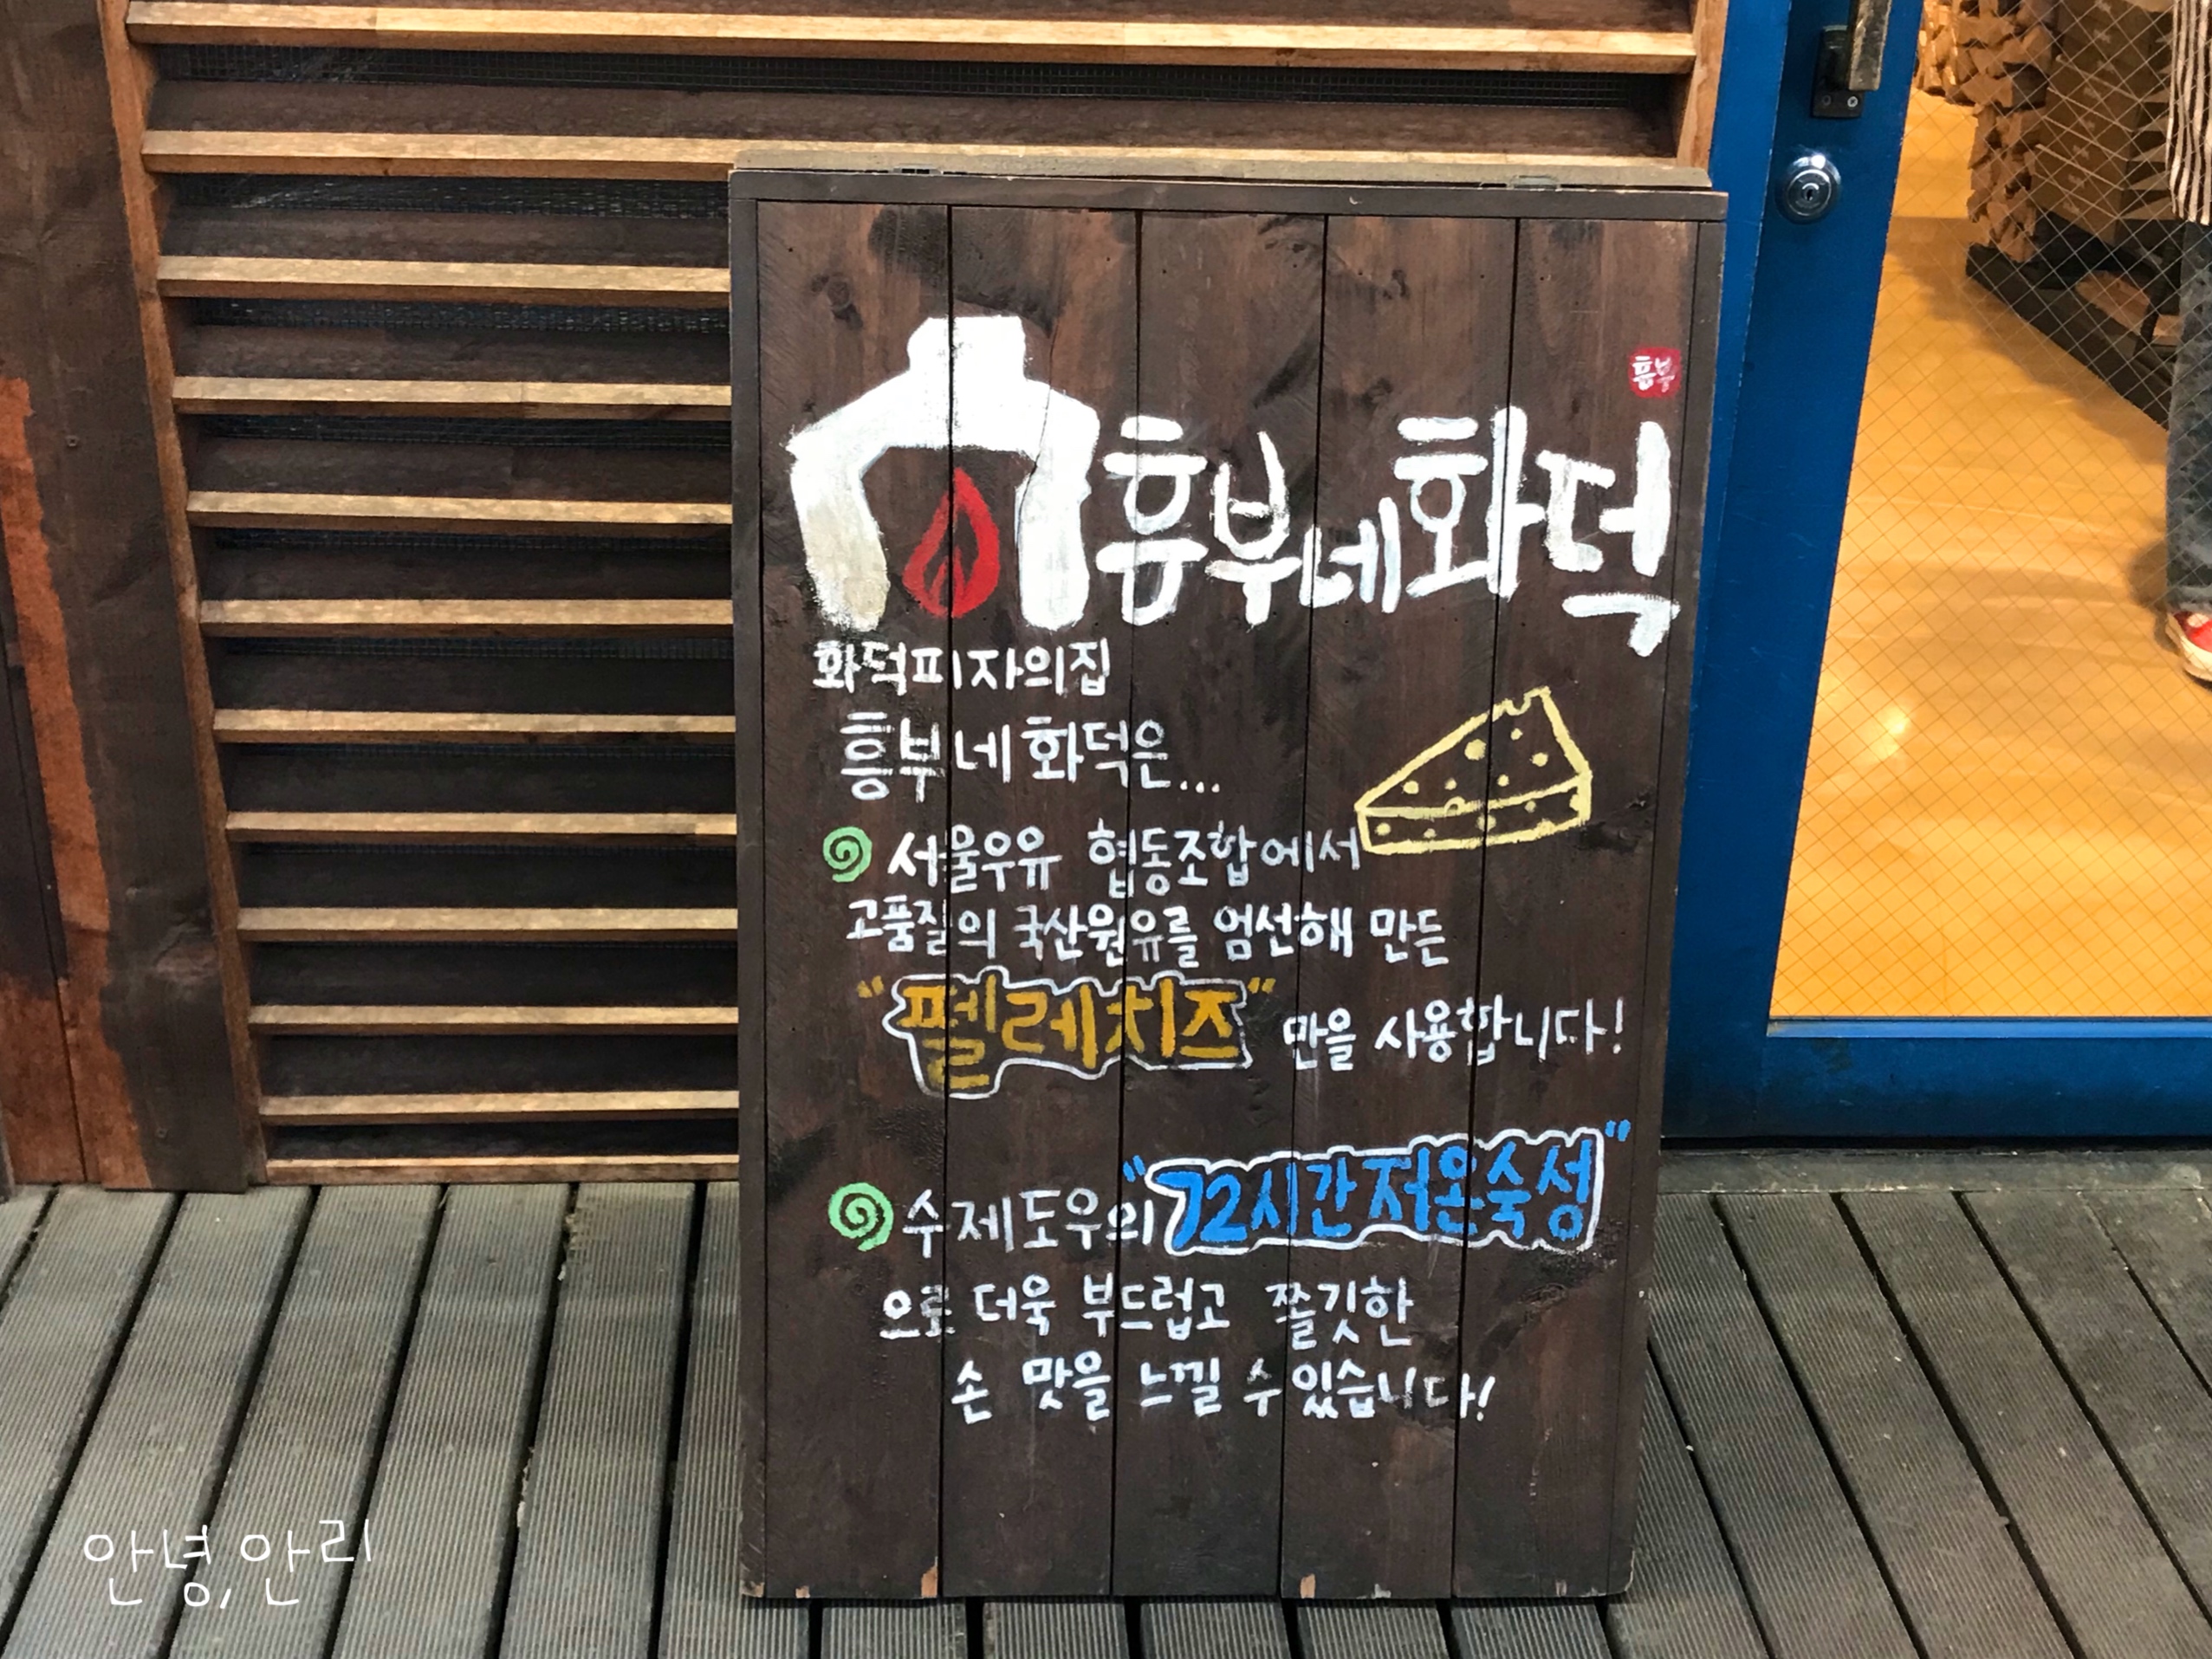 흥부
흥부네화덕
화덕피자의집
흥부네화덕은...
서울우유 협동조합에서
고품질의 국산원유를 엄선해 만든
"펠레치즈" 만을 사용합니다!
수제도우의 "72시간저온숙성"
으로 더욱 부드럽고 쫄깃한
손 맛을 느낄 수 있습니다!
안녕,안리